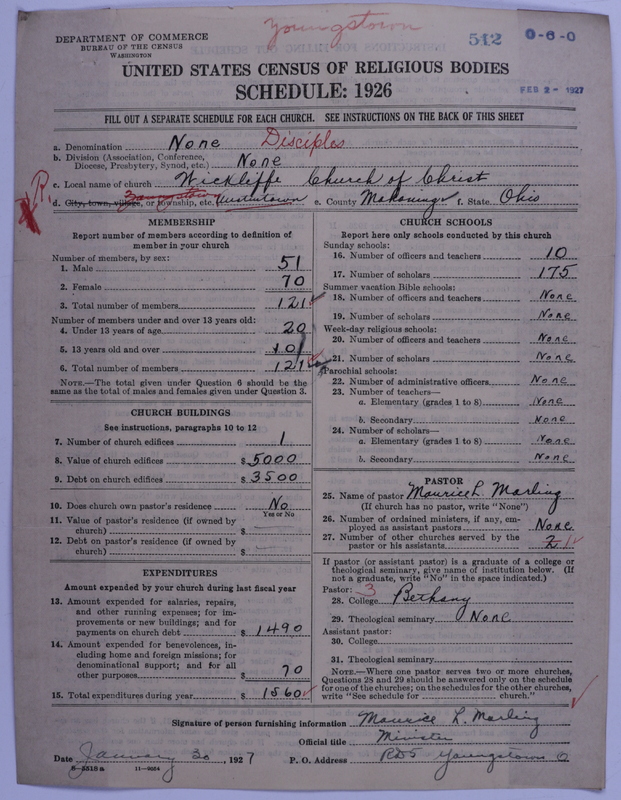 Youngstown
DEPARTMENT OF COMMERCE
BUREAU OF THE CENSUS
WASHINGTON
512 0-6-0
UNITED STATES CENSUS OF RELIGIOUS BODIES
SCHEDULE: 1926
FEB 2 - 1927
FILL OUT A SEPARATE SCHEDULE FOR EACH CHURCH. SEE INSTRUCTIONS ON THE BACK OF THIS SHEET
a. Denomination None Disciples
b. Division (Association, Conference, Diocese, Presbytery, Synod, etc.) None
c. Local name of church Wickliffe Church of Christ
d. City, town, village, or township, etc. Youngstown Austintown e. County Mahoning f. State Ohio
MEMBERSHIP
Report number of members according to definition of
member in your church
Number of members, by sex:
1. Male 51
2. Female 70
3. Total number of members 121
Number of members under and over 13 years old:
4. Under 13 years of age 20
5. 13 years old and over 101
6. Total number of members 121
NOTE.—The total given under Question 6 should be
same as the total of males and females given under Question 3.
CHURCH BUILDINGS
See instructions, paragraphs 10 to 12
7. Number of church edifices 1
8. Value of church edifices $ 5000
9. Debt on church edifices $ 3500
10. Does church own pastor's residence No
Yes or No
11. Value of pastor's residence (if owned by
church) $
12. Debt on pastor's residence (if owned by
church) $
EXPENDITURES
Amount expended by your church during last fiscal year
13. Amount expended for salaries, repairs,
and other running expenses; for im-
provements or new buildings; and for
payments on church debt $ 1490
14. Amount expended for benevolences, in-
cluding home and foreign missions; for
denominational support; and for all
other purposes $ 70
15. Total expenditures during year $ 1560
CHURCH SCHOOLS
Report here only schools conducted by this church
Sunday schools:
16. Number of officers and teachers 10
17. Number of scholars 175
Summer vacation Bible schools:
18. Number of officers and teachers None
19. Number of scholars None
Week-day religious schools:
20. Number of officers and teachers None
21. Number of scholars None
Parochial schools:
22. Number of administrative officers None
23. Number of teachers—
a. Elementary (grades 1 to 8) None
b. Secondary None
24. Number of scholars—
a. Elementary (grades 1 to 8) None
b. Secondary None
PASTOR
25. Name of pastor Maurice L. Marling
(If church has no pastor, write "None")
26. Number of ordained ministers, if any, em-
ployed as assistant pastors None
27. Number of other churches served by the
pastor or his assistants 2 1
If pastor (or assistant pastor) is a graduate of a college or
theological seminary, give name of institution below. (If
not a graduate, write "No" in the space indicated.)
Pastor: 3
28. College Bethany
29. Theological seminary None
Assistant pastor:
30. College
31. Theological seminary
NOTE.—Where one pastor serves two or more churches,
Questions 28 and 29 should be answered only on the schedule
for one of the churches; on the schedules for the other churches,
write "See schedule for church."
Signature of person furnishing information Maurice L. Marling
Official title Minister
Date January 20, 1927 P. O. Address RD5 Youngstown O
8-5518a 11-9054